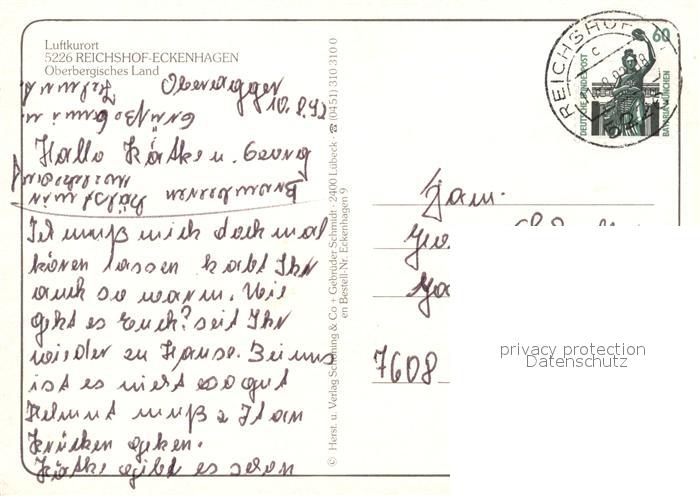 Luftkurort
5226 REICHSHOF-ECKENHAGEN
Oberbergisches Land
Oberagger
10.8.92
Hallo Käthe u. Georg
Brombeeren
Ich muß mich doch mal
hören lassen habt Ihr
auch so warm. Wie
geht es Euch? seit Ihr
wieder zu Hause. Bei uns
ist es nicht so gut
Helmut muß an
Krücken gehen.
Käthe gibt es schon
© Herst. u. Verlag Schöning & Co + Gebrüder Schmidt · 2400 Lübeck · ☎ (0451) 310 310 0
en Bestell-Nr. Eckenhagen 9
REICHSHOF
c
DEUTSCHE BUNDESPOST
60
BAVARIA MÜNCHEN
Fam.
7608
privacy protection
Datenschutz